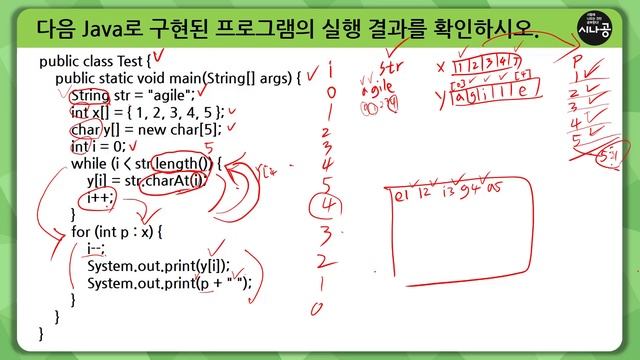 다음 Java로 구현된 프로그램의 실행 결과를 확인하시오.
시나공
public class Test {
public static void main(String[] args) {
String str = "agile";
int x[] = { 1, 2, 3, 4, 5 };
char y[] = new char[5];
int i = 0;
while (i < str.length()) {
y[i] = str.charAt(i);
i++;
}
for (int p : x) {
i--;
System.out.print(y[i]);
System.out.print(p + " ");
}
}
}
5
i
0
1
2
3
4
5
4
3
2
1
0
str
agile
x
y
[0]
[4]
a g i l e
P
1
2
3
4
5
e1 l2 i3 g4 a5